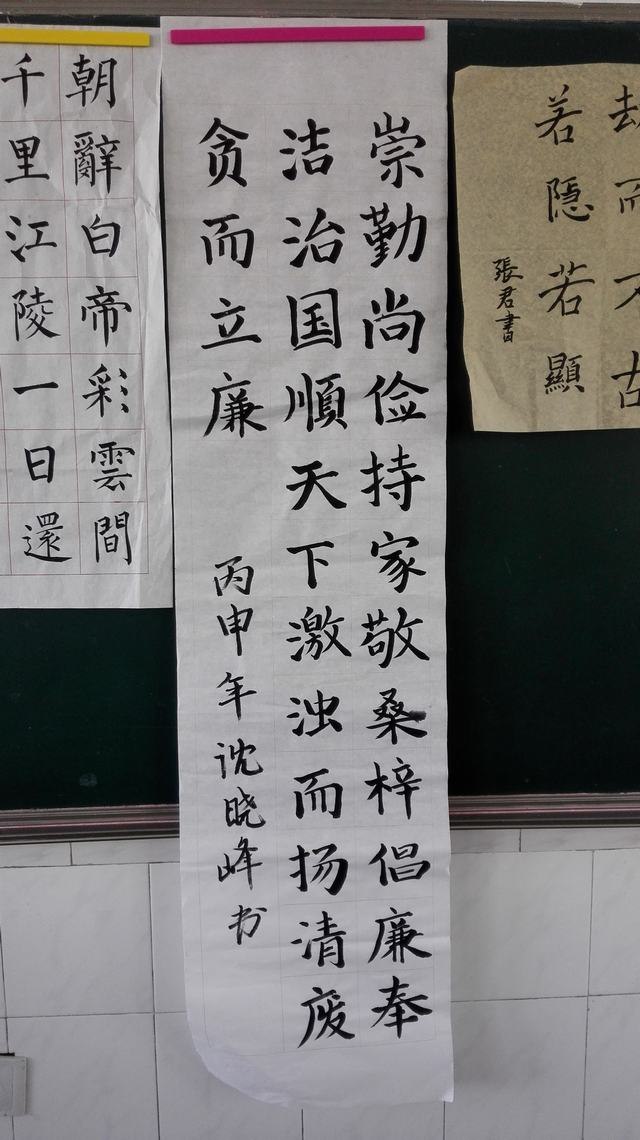 劫而不古
若隱若顯
張君書
崇勤尚俭持家敬桑梓倡廉奉
洁治国順天下激浊而扬清废
贪而立廉
丙申年沈晓峰书
朝辭白帝彩雲間
千里江陵一日還